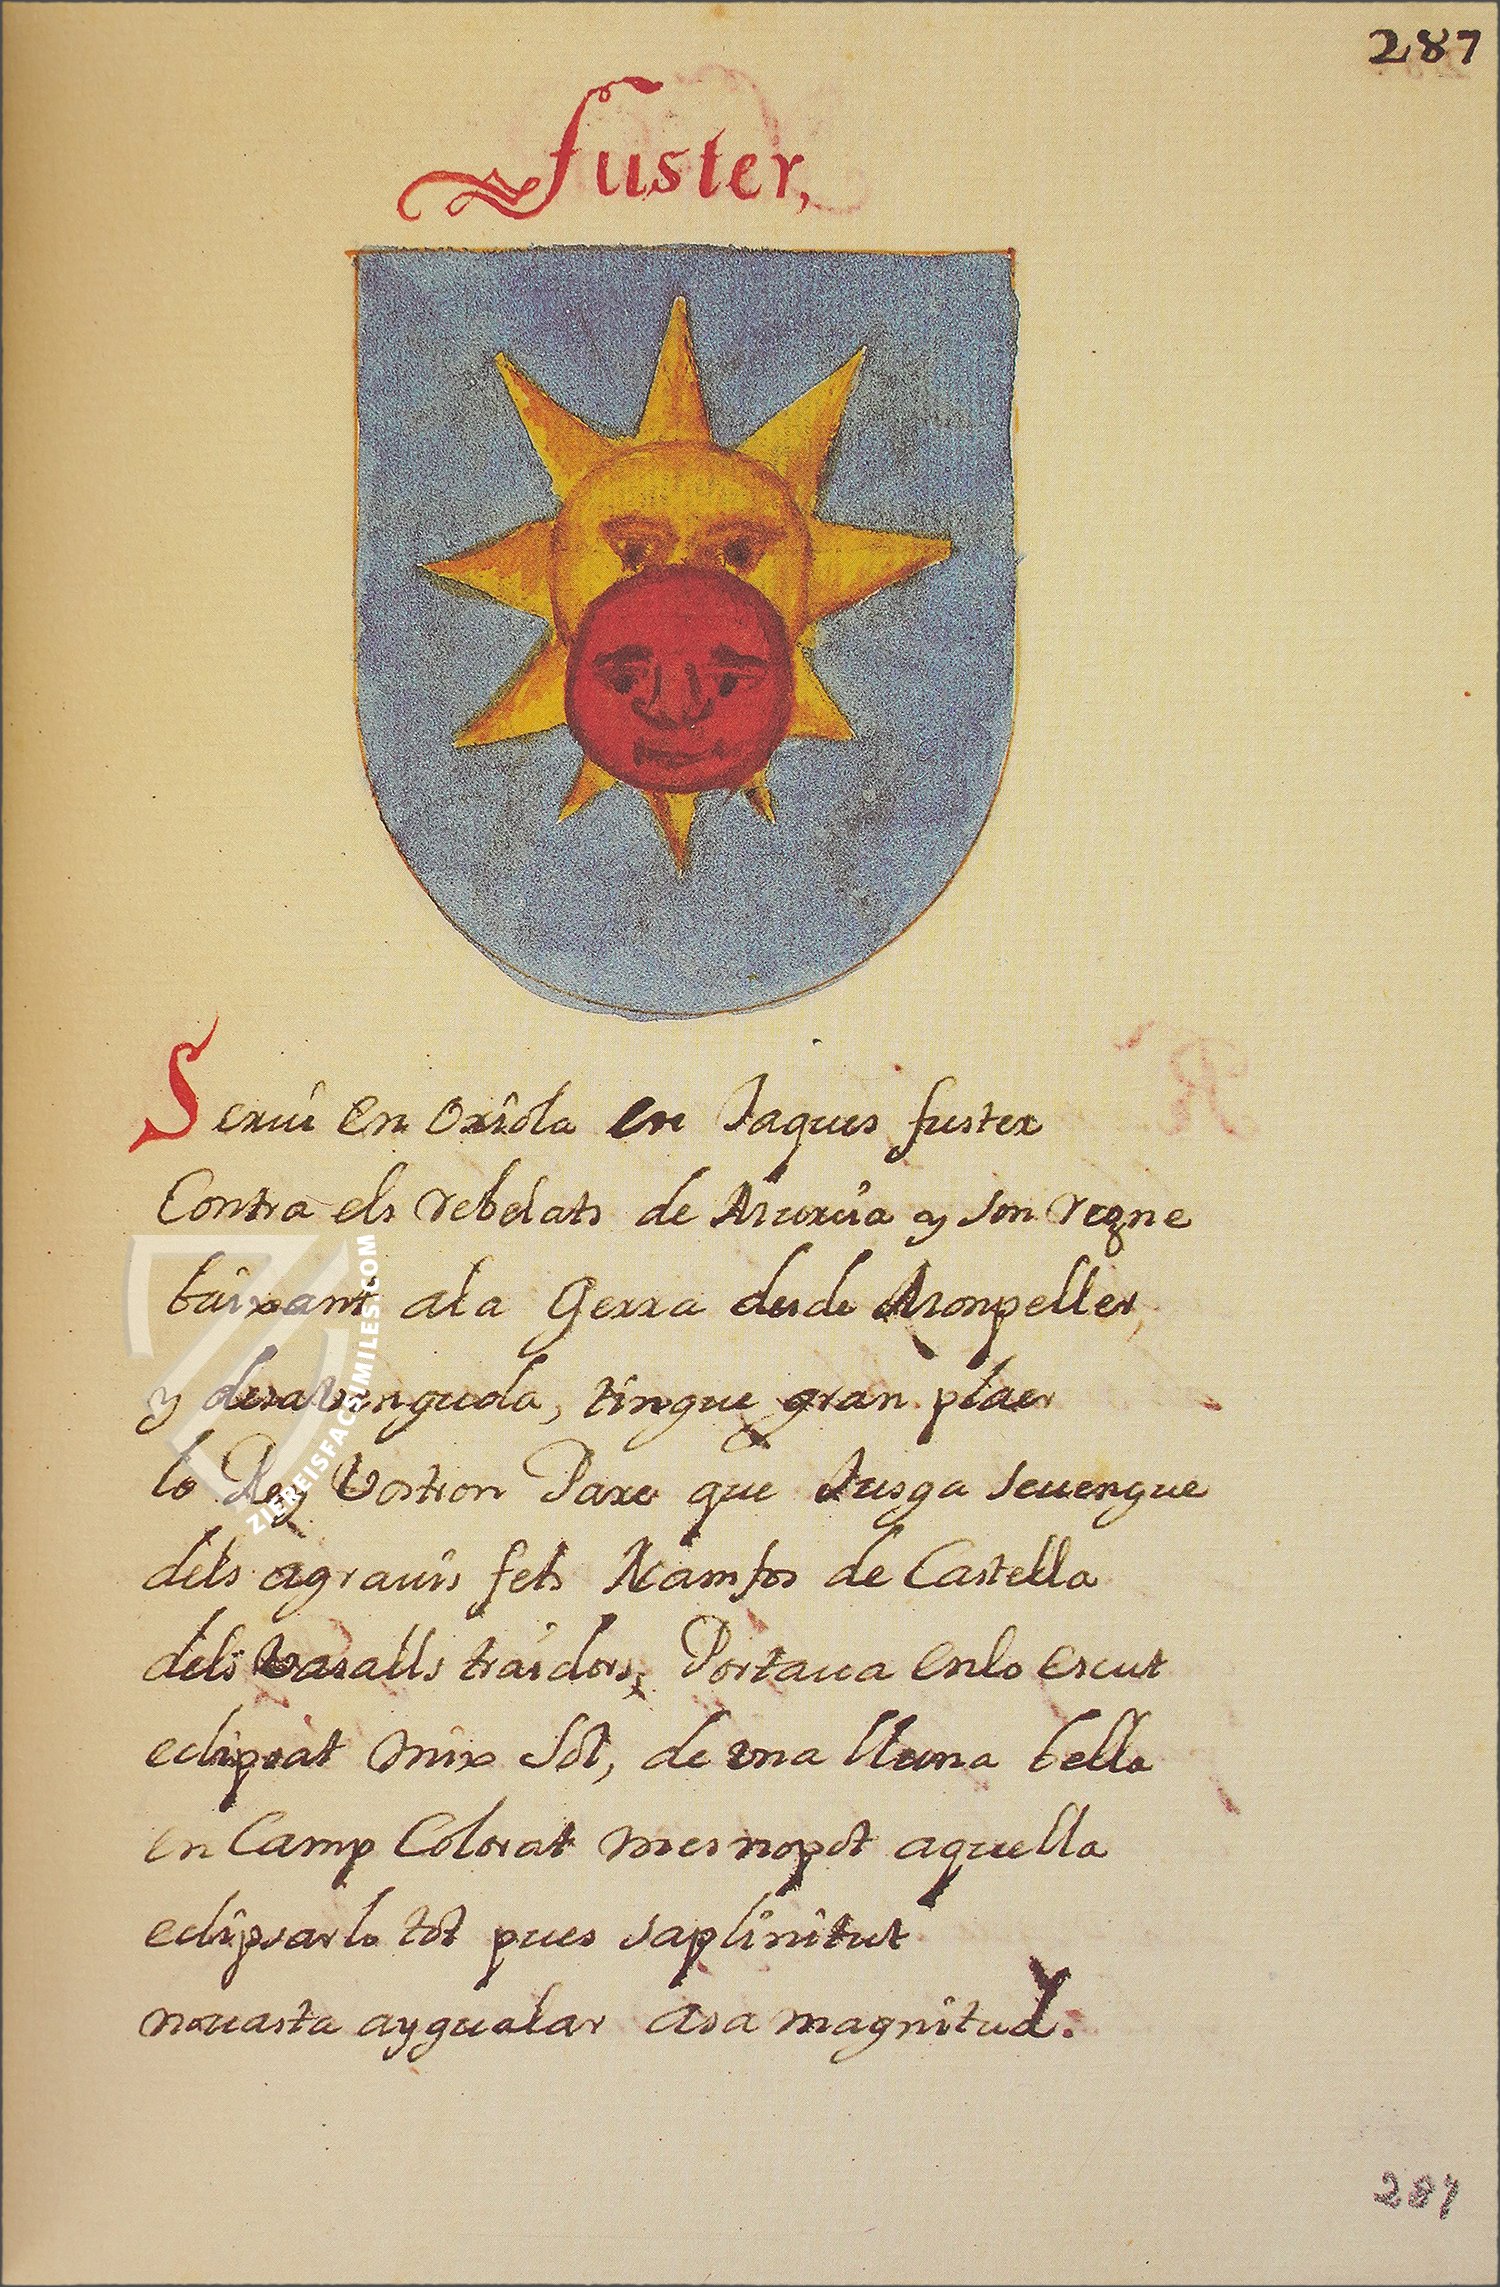 287
fuster,
Serui en oriola en Jaques fuster
Contra els rebelats de Murcia y son regne
baixant ala Gerra desde Monpeller,
y desa venguda, tingue gran plaer
lo Rey Vostron Pare que Jusga seuengue
dels agrauis fets Namfos de Castella
dels vasalls traidors, Portaua enlo escut
eclipsat mix Sol, de vna lluna bella
en Camp Colorat mes nopot aquella
eclipsarlo tot pues saplinitut
nouasta aygualar asa magnitud.
287
ZIEREISFACSIMILES.COM